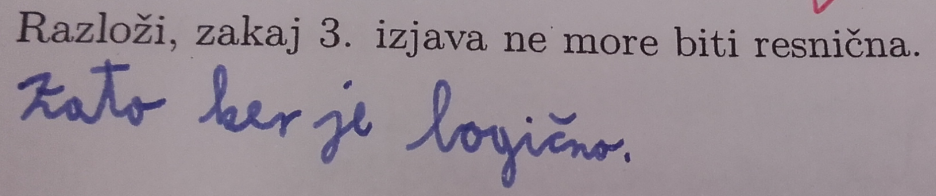 Razloži, zakaj 3. izjava ne more biti resnična.
Zato ker je logično.